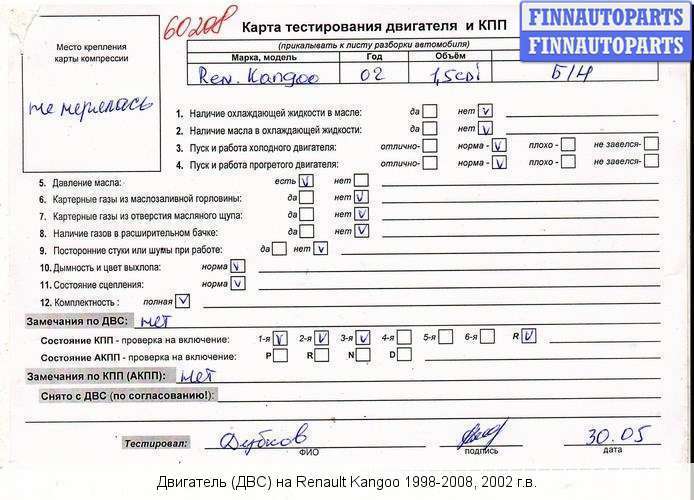 60208
Карта тестирования двигателя и КПП
FINNAUTOPARTS
FINNAUTOPARTS
(прикалывать к листу разборки автомобиля)
Место крепления
карты компрессии
не мерелась
Марка, модель Год Объём
Ren. Kangoo 02 1,5cdi Б/Н
1. Наличие охлаждающей жидкости в масле: да нет V
2. Наличие масла в охлаждающей жидкости: да нет V
3. Пуск и работа холодного двигателя: отлично- норма - V плохо - не завелся-
4. Пуск и работа прогретого двигателя: отлично- норма - V плохо - не завелся-
5. Давление масла: есть V нет
6. Картерные газы из маслозаливной горловины: да нет V
7. Картерные газы из отверстия масляного щупа: да нет V
8. Наличие газов в расширительном бачке: да нет V
9. Посторонние стуки или шумы при работе: да нет V
10. Дымность и цвет выхлопа: норма V
11. Состояние сцепления: норма V
12. Комплектность : полная V
Замечания по ДВС: нет
Состояние КПП - проверка на включение: 1-я V 2-я V 3-я V 4-я 5-я 6-я R V
Состояние АКПП - проверка на включение: P R N D
Замечания по КПП (АКПП): нет
Снято с ДВС (по согласованию!):
Тестировал: Дубков 30.05
ФИО подпись дата
Двигатель (ДВС) на Renault Kangoo 1998-2008, 2002 г.в.